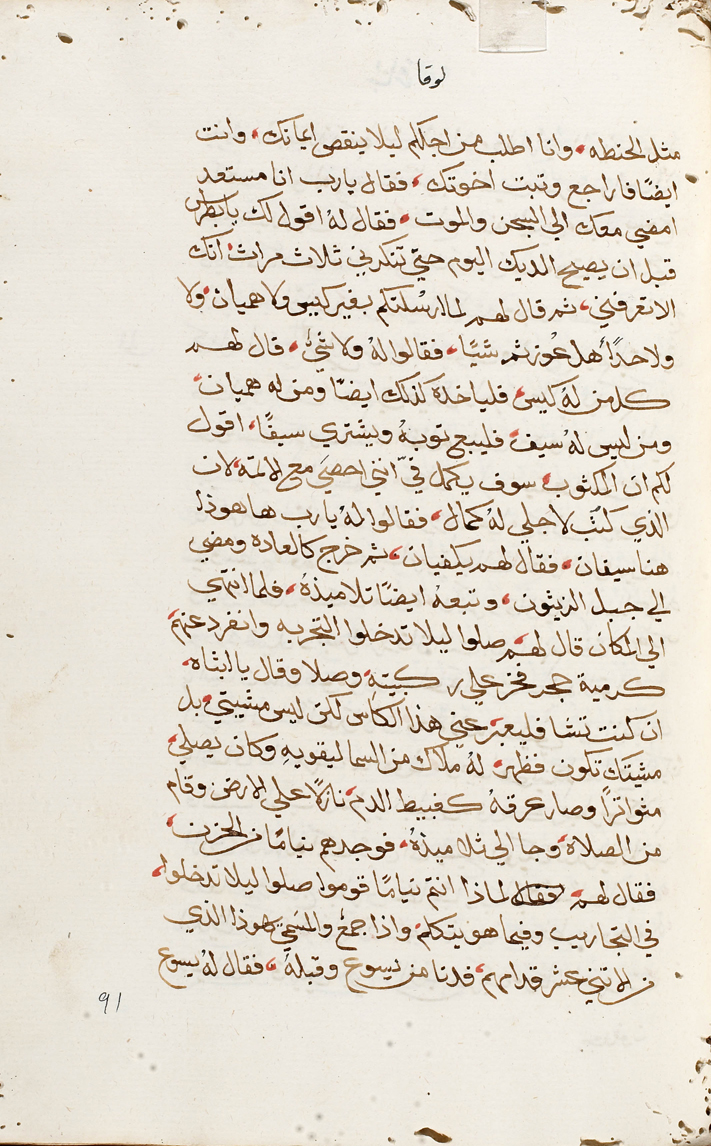 لوقا
مثل الحنطه، وانا اطلب من اجلكم ليلا ينقص ايمانك، وانت
ايضًا فارجع وثبت اخوتك، فقال يارب انا مستعد
امضي معك الي السجن والموت، فقال لهُ اقول لك يابطرس
قبل ان يصيح الديك اليوم حتي تنكرني ثلاث مرات انك
لاتعرفني، ثم قال لهم لما ارسلتكم بغير كيس ولا هميان ولا
ولاحدًا هل عُوزتم شيًا، فقالوا لهُ ولاشي، قال لهم
كلمن لهُ كيس، فلياخده كذلك ايضًا ومن له هميان
ومن ليس لهُ سيف، فليبع توبهُ ويشتري سيفًا، اقول
لكم ان المكتوب سوف يكمل فيّ انني احصيَ مع الاثمه لان
الذي كتب لاجلي لهُ كمال، فقالوا لهُ يارب هاهوذا
هنا سيفان، فقال لهم يكفيان، ثم خرج كالعاده ومضي
الي جبل الزيتون، وتبعهُ ايضًا تلاميذهُ، فلما انتهي
الي المكان قال لهم صلوا ليلا تدخلوا التجربه وانفرد عنهم
كرمية حجر فخر علي ركبتيهِ وصلا وقال يا ابتاه،
ان كنت تشا فليعبر عني هذا الكاس لكن ليس مشيتي بل
مشيتك تكون فظهر لهُ ملاك من السما ليقويهِ وكان يصلي
متواترًا وصار عرقهُ كعبيط الدم نازلًا علي الارض وقام
من الصلاة، وجا الي تلاميذهُ، فوجدهم نيامًا من الحزن،
فقال لهم لماذا انتم نيامًا قوموا صلوا ليلا تدخلوا،
في التجاريب وفيما هو يتكلم واذا جمع والمسَمي يهوذا الذي
من الاتني عشر قدامهم، فدنا من يسوع وقبلهُ، فقال لهُ يسوع
91